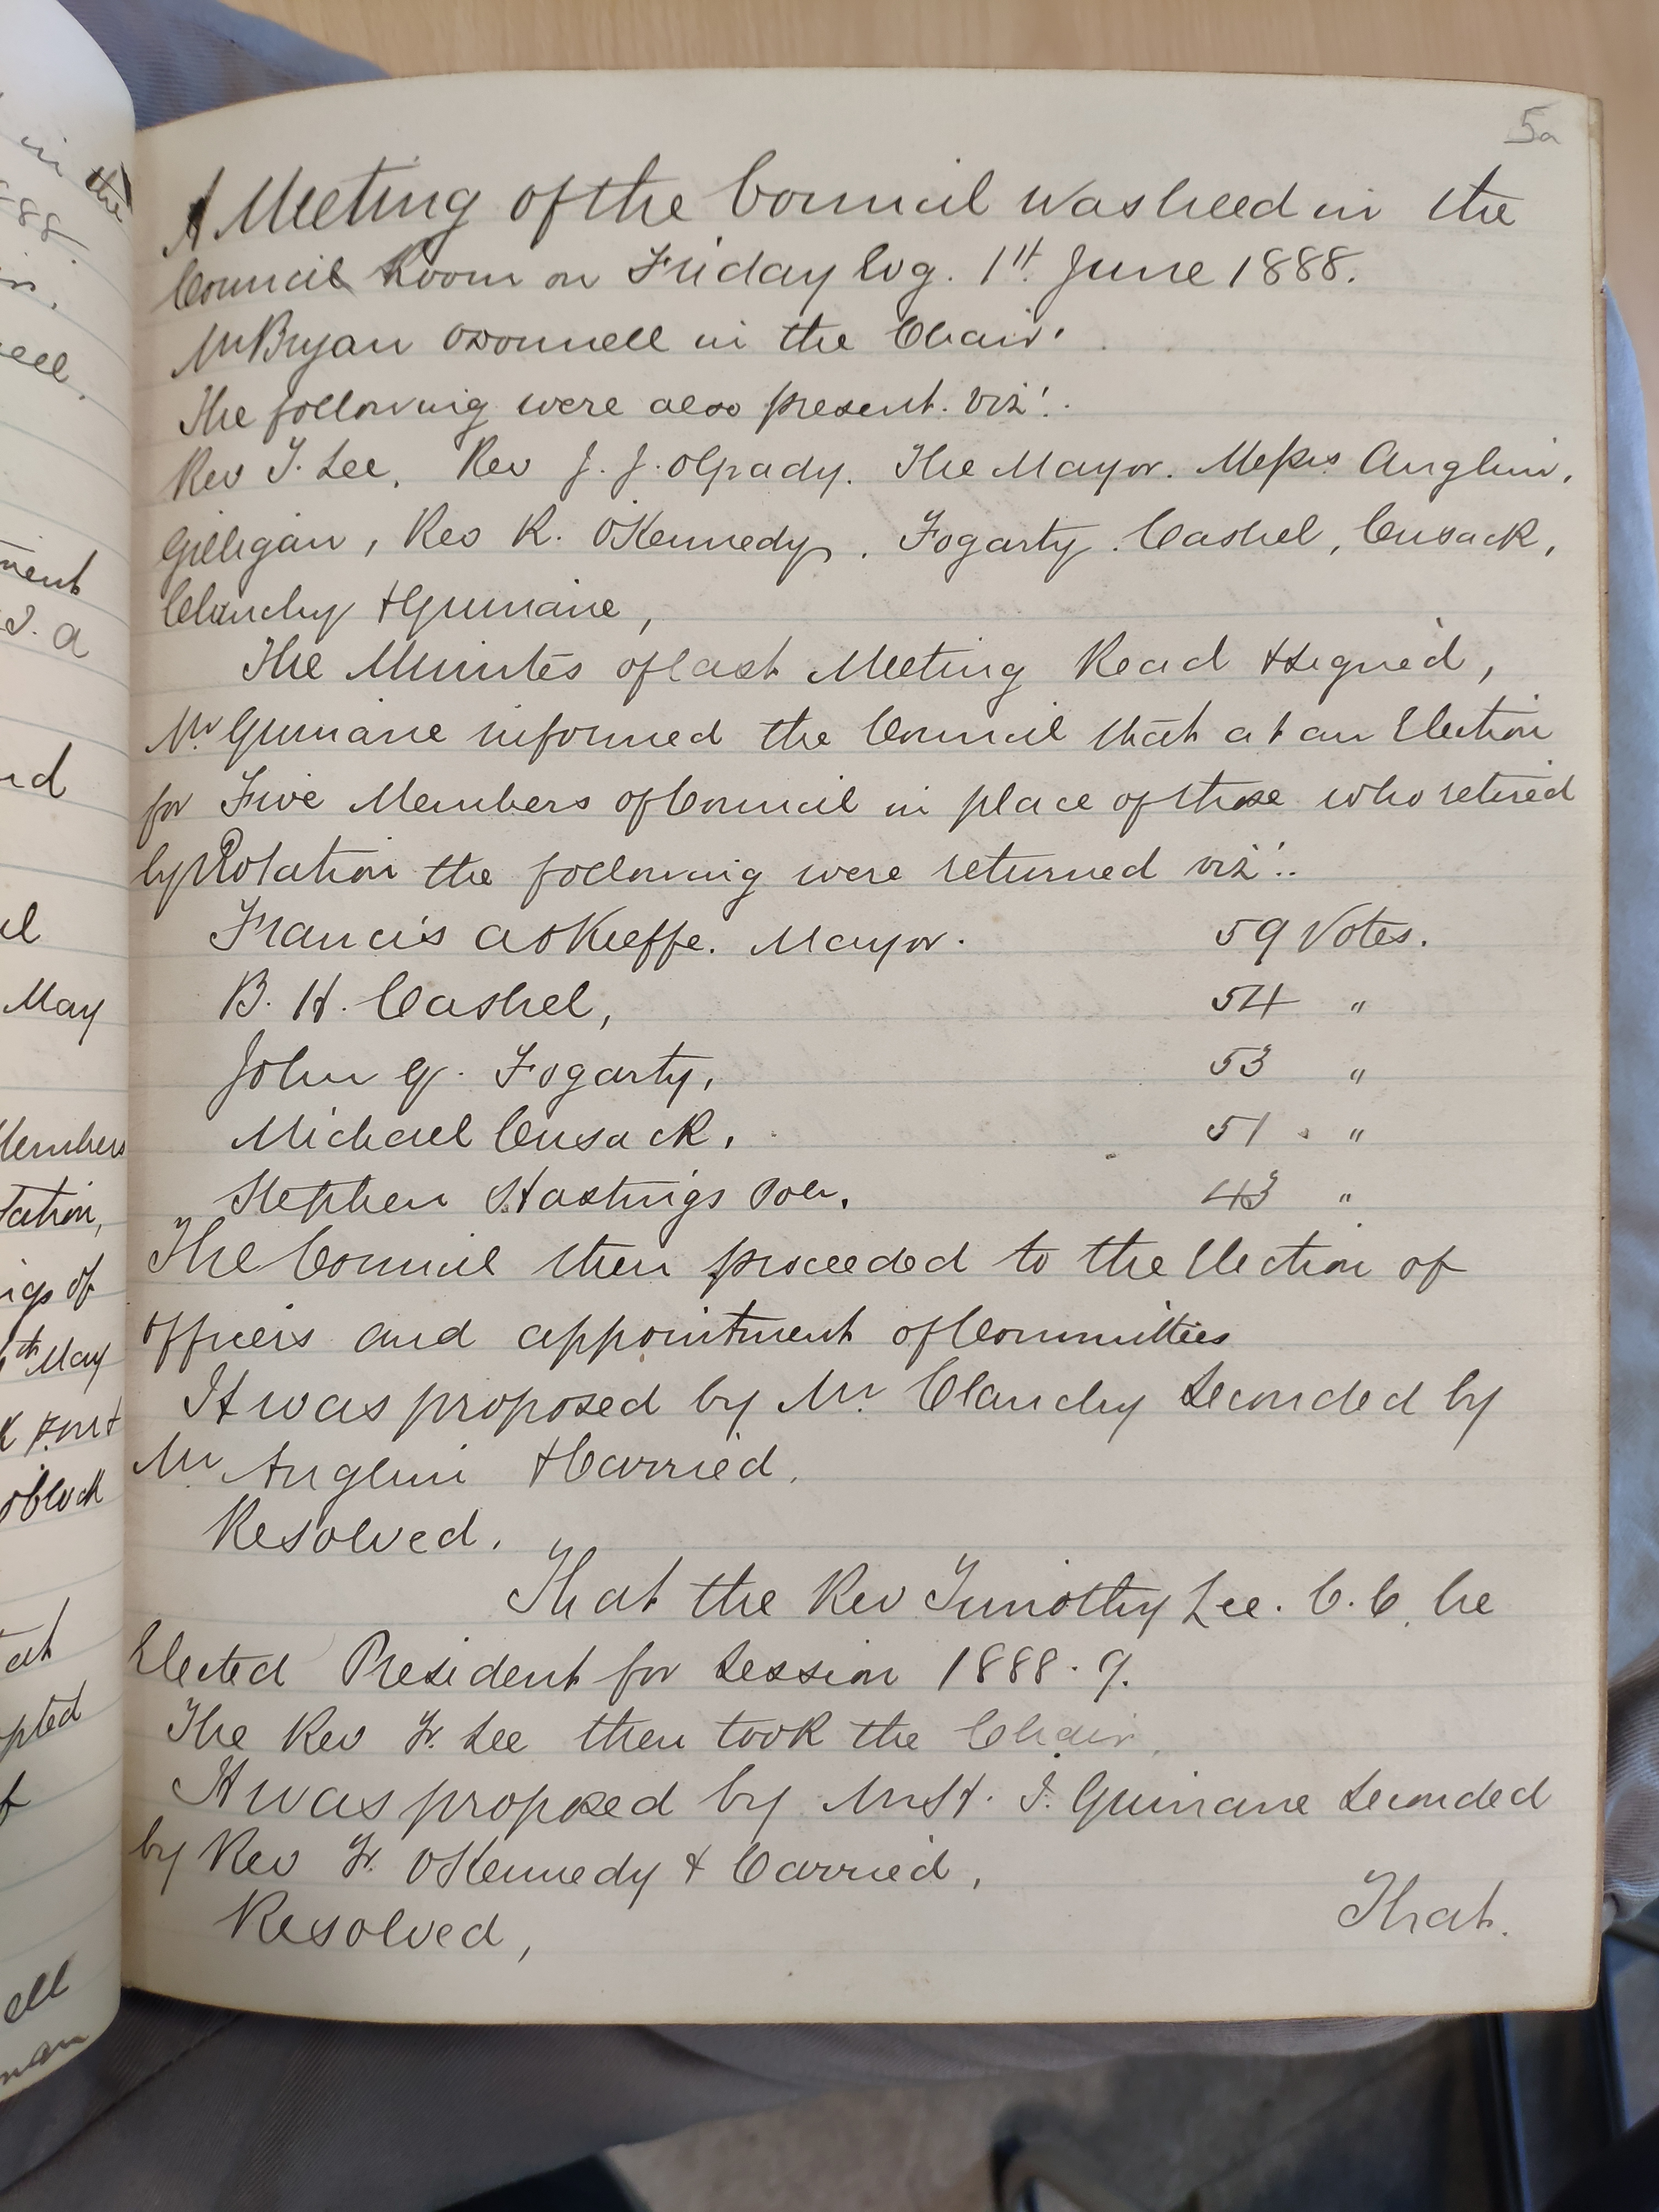 5a
A Meeting of the Council was held in the
Council Room on Friday Evg. 1st. June 1888.
Mr Bryan ODonnell in the Chair.
The following were also present. viz:.
Rev T. Lee, Rev J. J. OGrady. The Mayor. Messrs Anglim,
Gilligan, Rev R. OKennedy, Fogarty. Cashel, Cusack,
Clanchy & Guinane,
The Minutes of last Meeting Read & Signed,
Mr. Guinane informed the Council that at an Election
for Five Members of Council in place of those who retired
by Rotation the following were returned viz:.
Francis A OKeeffe. Mayor. 59 Votes.
B. H. Cashel, 54 "
John G. Fogarty, 53 "
Michael Cusack, 51 "
Stephen Hastings 43 "
The Council then proceeded to the Election of
Officers and appointment of Committees
It was proposed by Mr. Clanchy Seconded by
Mr Anglim & Carried.
Resolved,
That the Rev Timothy Lee. C.C. be
Elected President for Session 1888.9.
The Rev Fr. Lee then took the Chair.
It was proposed by Mr H. J. Guinane Seconded
by Rev Fr. OKennedy & Carried,
Resolved,
That.
in the
88
ment
May
Members
tation,
th May
at